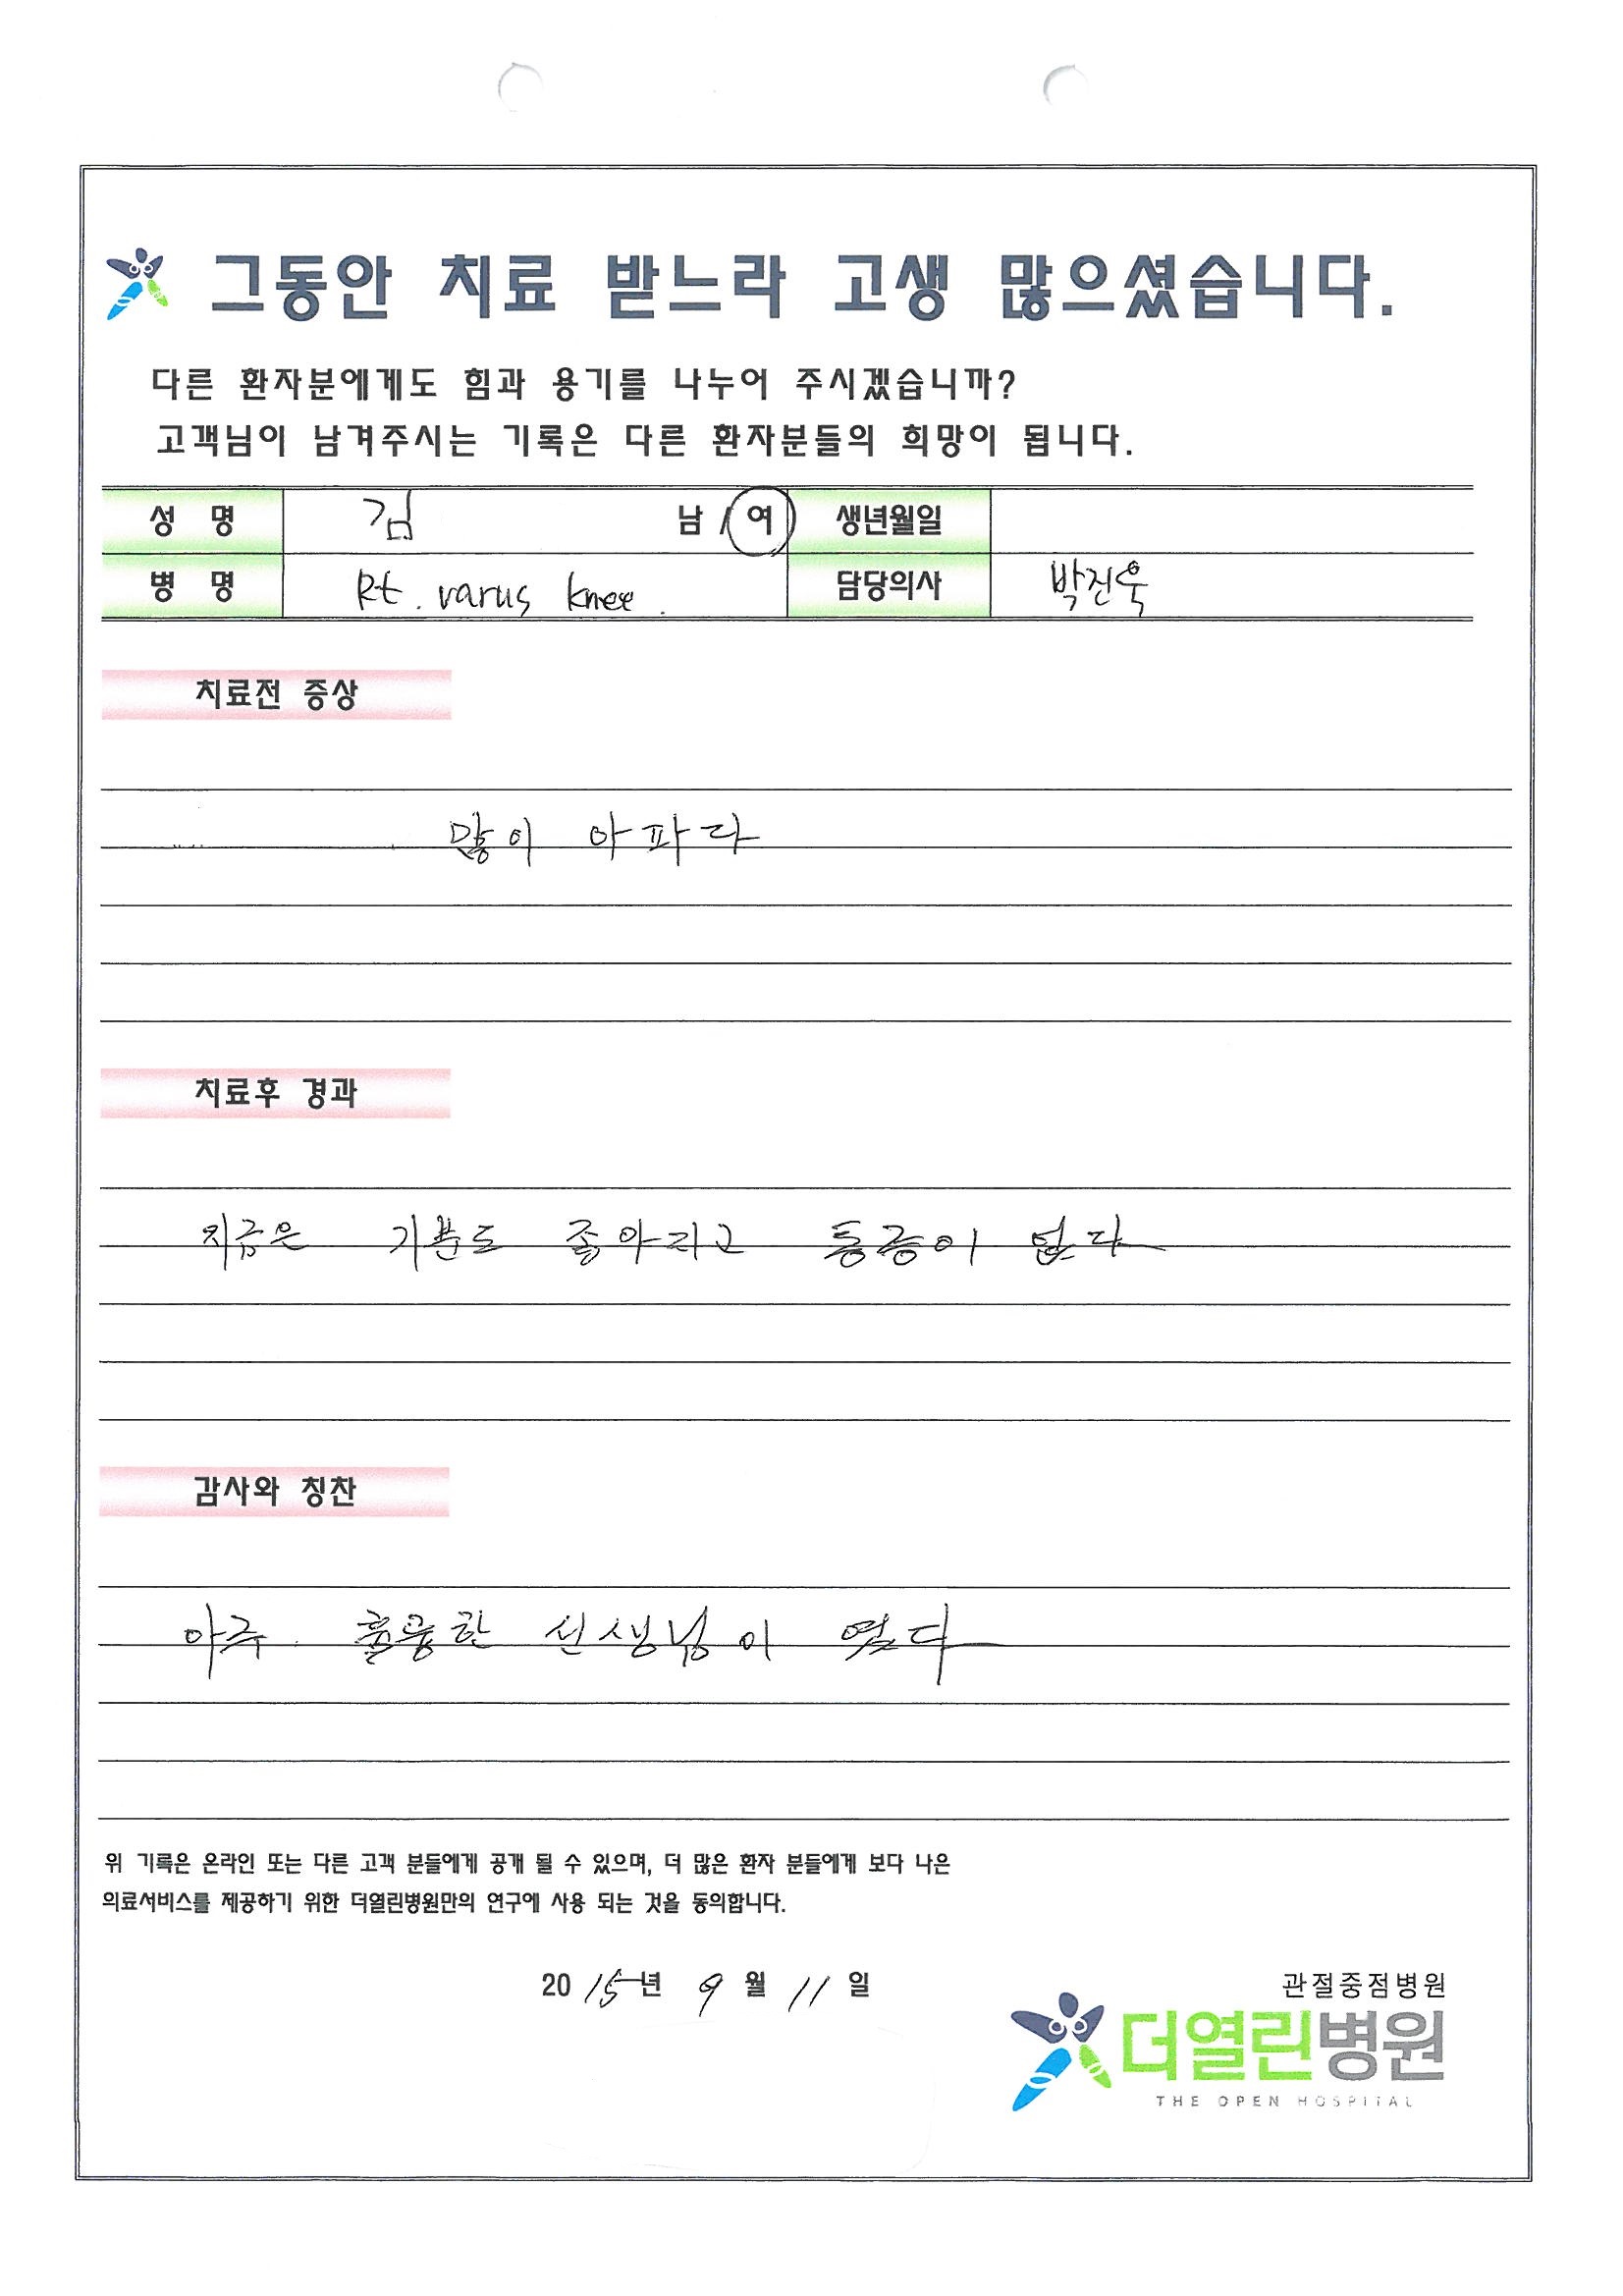 그동안 치료 받느라 고생 많으셨습니다.
다른 환자분에게도 힘과 용기를 나누어 주시겠습니까?
고객님이 남겨주시는 기록은 다른 환자분들의 희망이 됩니다.
성 명 김 남 / 여 생년월일
병 명 Rt. varus knee. 담당의사 박진욱
치료전 증상
많이 아파다
치료후 경과
지금은 기분도 좋아지고 통증이 없다
감사와 칭찬
아주 훌륭한 선생님이 였다
위 기록은 온라인 또는 다른 고객 분들에게 공개 될 수 있으며, 더 많은 환자 분들에게 보다 나은
의료서비스를 제공하기 위한 더열린병원만의 연구에 사용 되는 것을 동의합니다.
2015년 9월 11일
관절중점병원
더열린병원
THE OPEN HOSPITAL